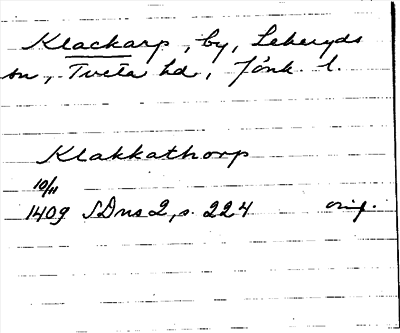 Klackarp, by, Lekeryds
sn, Tveta hd, Jönk. l.
Klakkathorp
10/11
1409 SDns 2, s. 224 orig.